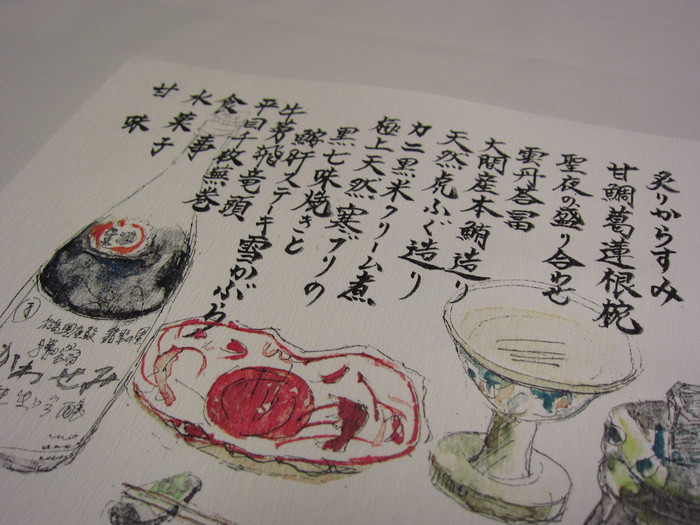 炙りからすみ
甘鯛葛蓮根椀
聖夜の盛り合わせ
雲丹苔冨
大間産本鮪造り
天然虎ふぐ造り
カニ黒米クリーム煮
極上天然寒ブリの
黒七味焼きと
鮟肝ステーキ 雪かぶら
牛蒡飛竜頭
平目千枚蕪巻
食事
水菓子
甘味
かわせみ